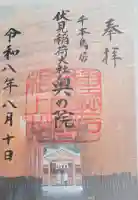 奉拝
千本鳥居
伏見稲荷大社
奥の院
令和八年八月十日